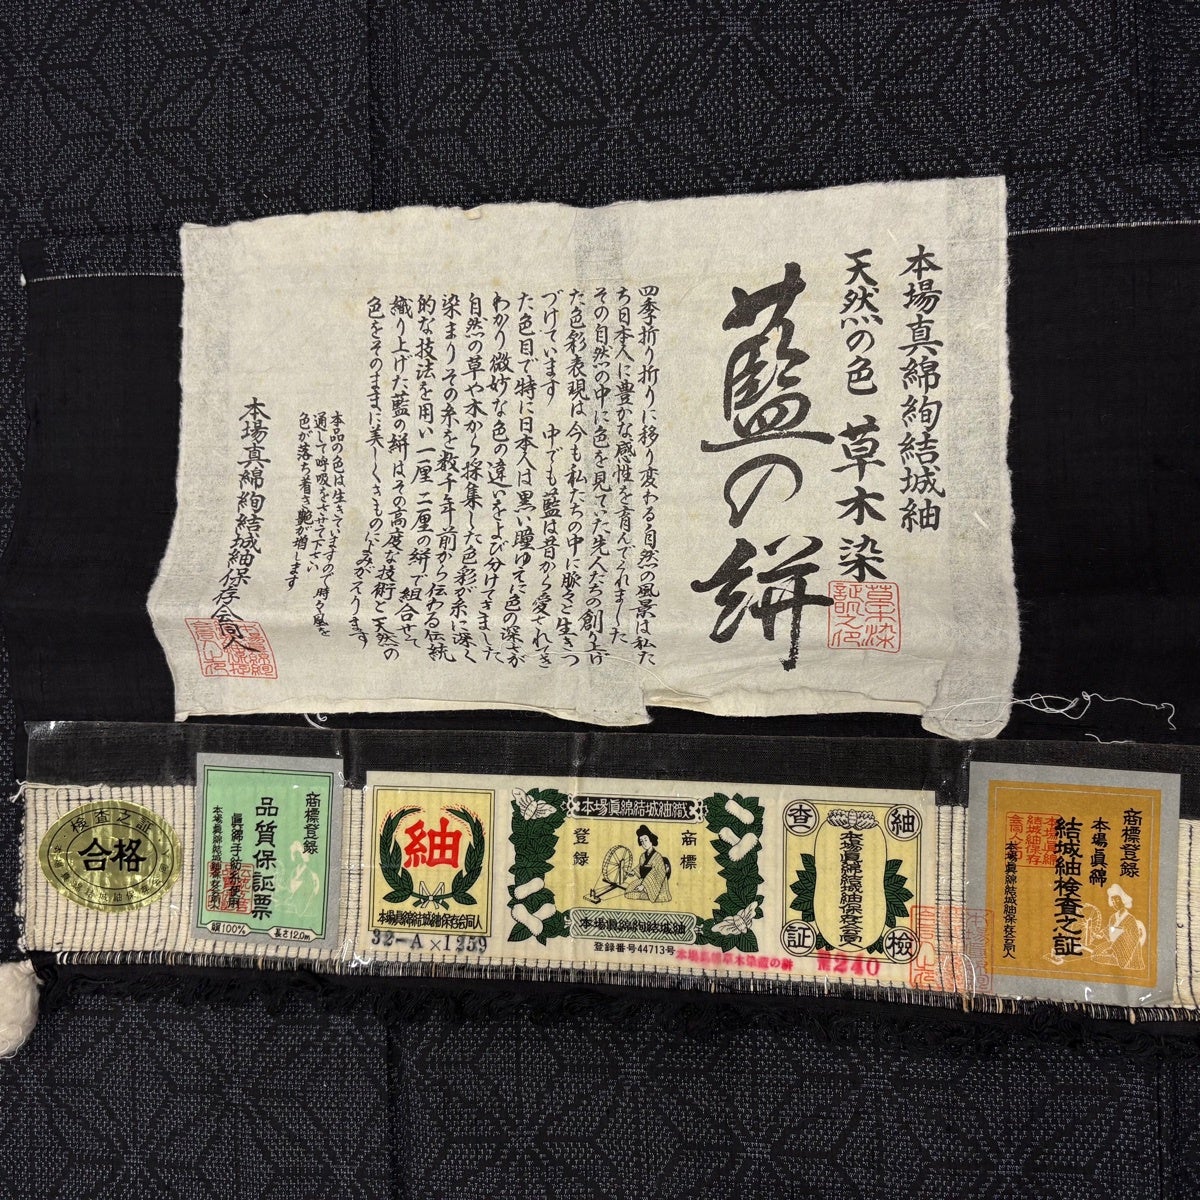 本場真綿絢結城紬
天然の色 草木染
藍の絣
草木染
証明之印
四季折り折りに移り変わる自然の風景は私た
ち日本人に豊かな感性を育んでくれました
その自然の中に色を見ていた先人たちの創り上げ
た色彩表現は今も私たちの中に脈々と生きつ
づけています 中でも藍は昔から愛されてき
た色目で特に日本人は黒い瞳ゆえに色の深さが
わかり微妙な色の違いをよび分けてきました
自然の草や木から採集した色彩が糸に深く
染まりその糸を数千年前から伝わる伝統
的な技法を用い一厘二厘の絣で組合せて
織り上げた藍の絣はその高度な技術と天然の
色をそのままに美しくきものによみがえります
本品の色は生きていますので時々風を
通して呼吸をさせて下さい
色が落ち着き艶が増します
本場真綿絢結城紬保存会同人
検査之証
合格
商標登録
品質保証票
真綿手紡糸使用
本場真綿結城紬保存会同人
絹100%
長さ12.0m
紬
本場眞綿結城紬保存会同人
32-A×1259
本場眞綿結城紬織
商標
登録
本場眞綿絢結城紬
登録番号44713号
本場真綿草木染藍の絣
紬
検
査
証
本場眞綿結城紬保存会
240
商標登録
本場眞綿
結城紬検査之証
本場眞綿結城紬保存会同人
本場真綿
結城紬保存
会同人